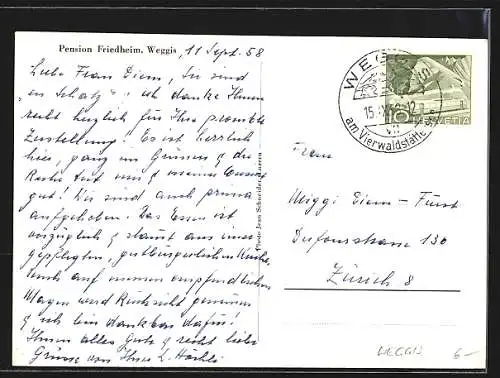 Pension Friedheim, Weggis, 11 Sept. 58
Liebe Frau Diem, Sie sind
ein Schatz! ich danke Ihnen
recht herzlich für Ihre prompte
Zustellung! Es ist herrlich
hier, ganz im Grünen & die
Ruhe tut uns &
gut! Wir sind auch prima
aufgehoben. Das Essen ist
vorzüglich & stammt aus einer
gepflegten, gutbürgerlichen Küche,
auch auf meinen empfindlichen
Magen wird Rücksicht genommen
& ich bin dankbar dafür!
Ihnen alles Gute & recht liebe
Grüsse von Ihrer L.
Photo Jean Schneider, Luzern
WEGGIS
15. 12
am Vierwaldstättersee
10
HELVETIA
Frau
Miggi Diem-Fürst
Dufourstrasse 130
Zürich 8
WEGGIS 6.-